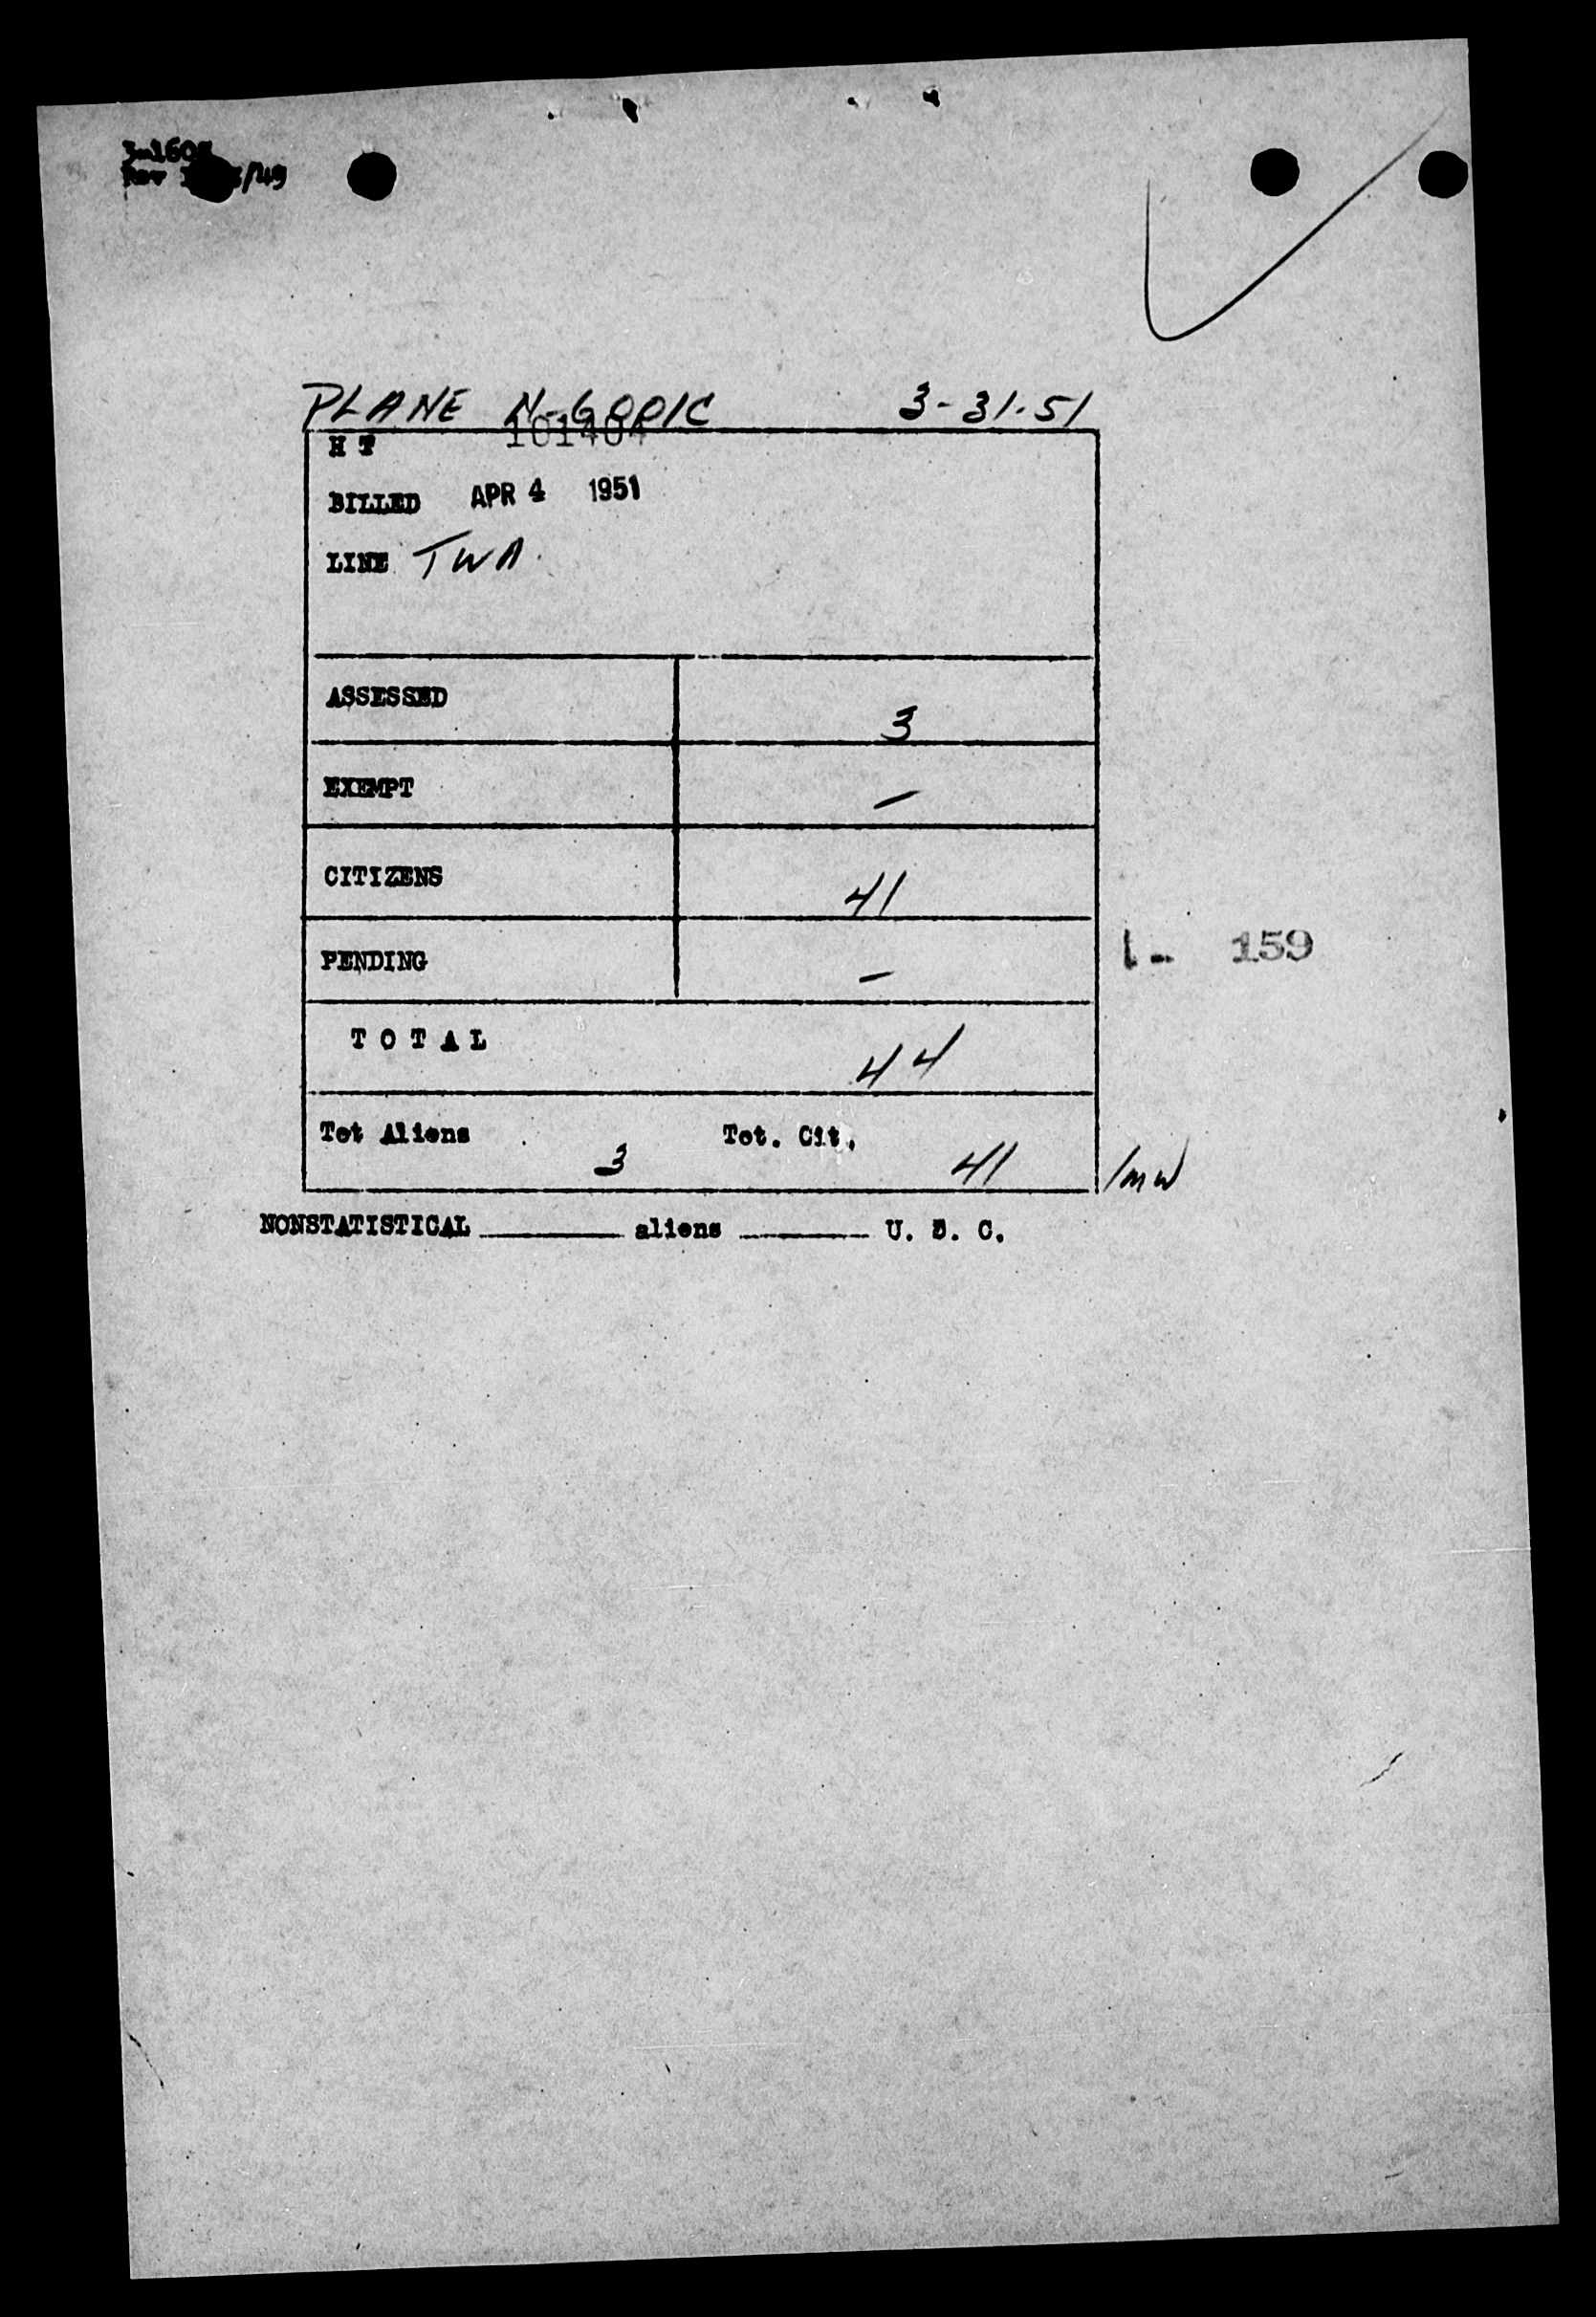 3-160
Rev /49
PLANE N-6001C 3-31-51
H T 101404
BILLED APR 4 1951
LINE TWA
ASSESSED 3
EXEMPT -
CITIZENS 41
PENDING -
1- 159
T O T A L 44
Tot Aliens 3 Tot. Cit. 41 /mw
NONSTATISTICAL ______ aliens ______ U. S. C.